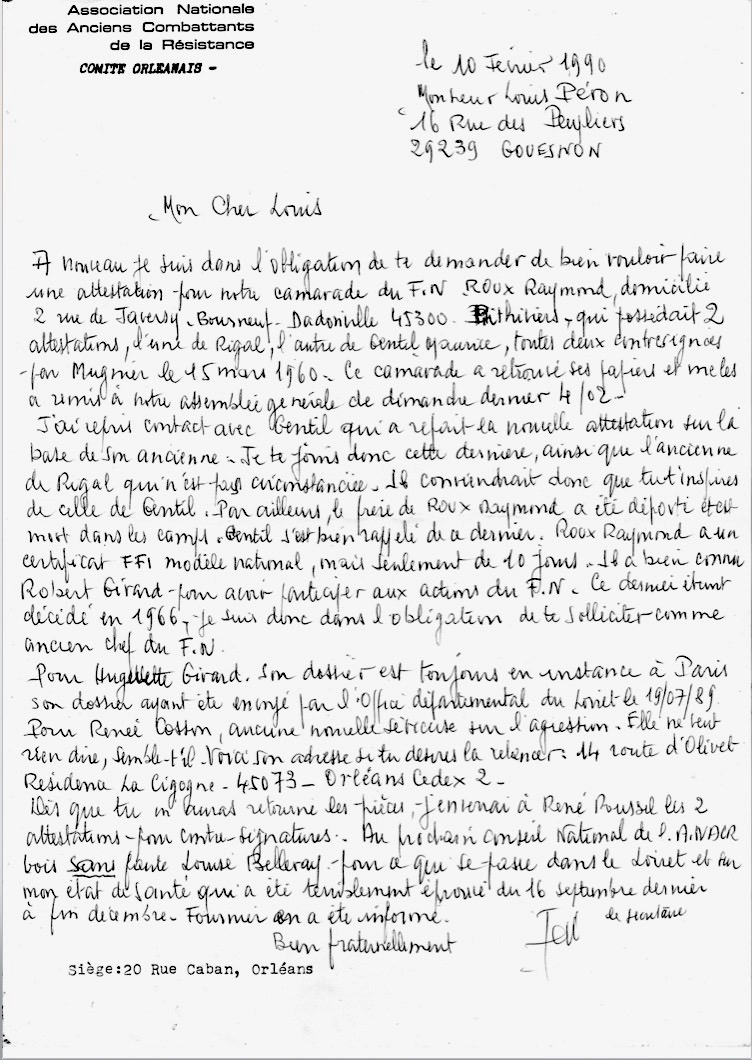 Association Nationale
des Anciens Combattants
de la Résistance
COMITE ORLEANAIS -
le 10 Février 1990
Monsieur Louis Péron
16 Rue des Peupliers
29239 GOUESNON
Mon Cher Louis
A nouveau je suis dans l'obligation de te demander de bien vouloir faire
une attestation pour notre camarade du F.N ROUX Raymond, domicilié
2 rue de Javersy. Bourneuf. Dadonville 45300 Pithiviers, qui possédait 2
attestations, l'une de Rigal, l'autre de Gentil Maurice, toutes deux contresignées
par Mugnier le 15 mars 1960. Ce camarade a retrouvé ses papiers et me les
a remis à notre assemblée générale de dimanche dernier 4/02-
J'ai repris contact avec Gentil qui a refait la nouvelle attestation sur la
base de son ancienne. Je te joins donc cette dernière, ainsi que l'ancienne
de Rigal qui n'est pas circonstanciée. Il conviendrait donc que tu t'inspires
de celle de Gentil. Par ailleurs, le frère de ROUX Raymond a été déporté et est
mort dans les camps. Gentil s'est bien rappelé de ce dernier. ROUX Raymond a un
certificat FFI modèle national, mais seulement de 10 jours. Il a bien connu
Robert Girard pour avoir participer aux actions du F.N. Ce dernier étant
décédé en 1966, je suis donc dans l'obligation de te solliciter comme
ancien chef du F.N.
Pour Huguette Girard. Son dossier est toujours en instance à Paris
son dossier ayant été envoyé par l'Office départemental du Loiret le 19/07/89
Pour Renée Cosson, aucune nouvelle sérieuse sur l'agression. Elle ne veut
rien dire, semble-t-il. Voici son adresse si tu désires la relancer: 14 route d'Olivet
Résidence La Cigogne - 45073 - Orléans Cedex 2-
Dès que tu m'auras retourné les pièces, j'enverrai à René Roussel les 2
attestations pour contre-signatures. Au prochain Conseil National de l'ANACR
vois sans faute Louise Belleray pour ce que se passe dans le Loiret et sur
mon état de santé qui a été terriblement éprouvé du 16 septembre dernier
à fin décembre. Fournier en a été informé.
Bien fraternellement
le secrétaire
Siège:20 Rue Caban, Orléans